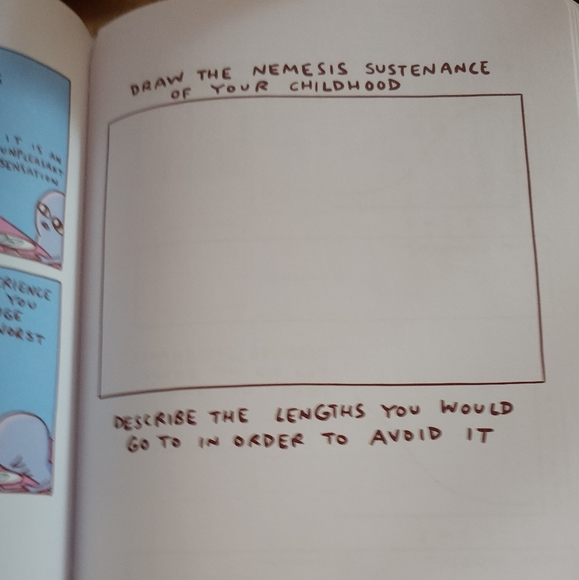 IT IS AN
UNPLEASANT
SENSATION
YOU
WORST
DRAW THE NEMESIS SUSTENANCE
OF YOUR CHILDHOOD
DESCRIBE THE LENGTHS YOU WOULD
GO TO IN ORDER TO AVOID IT